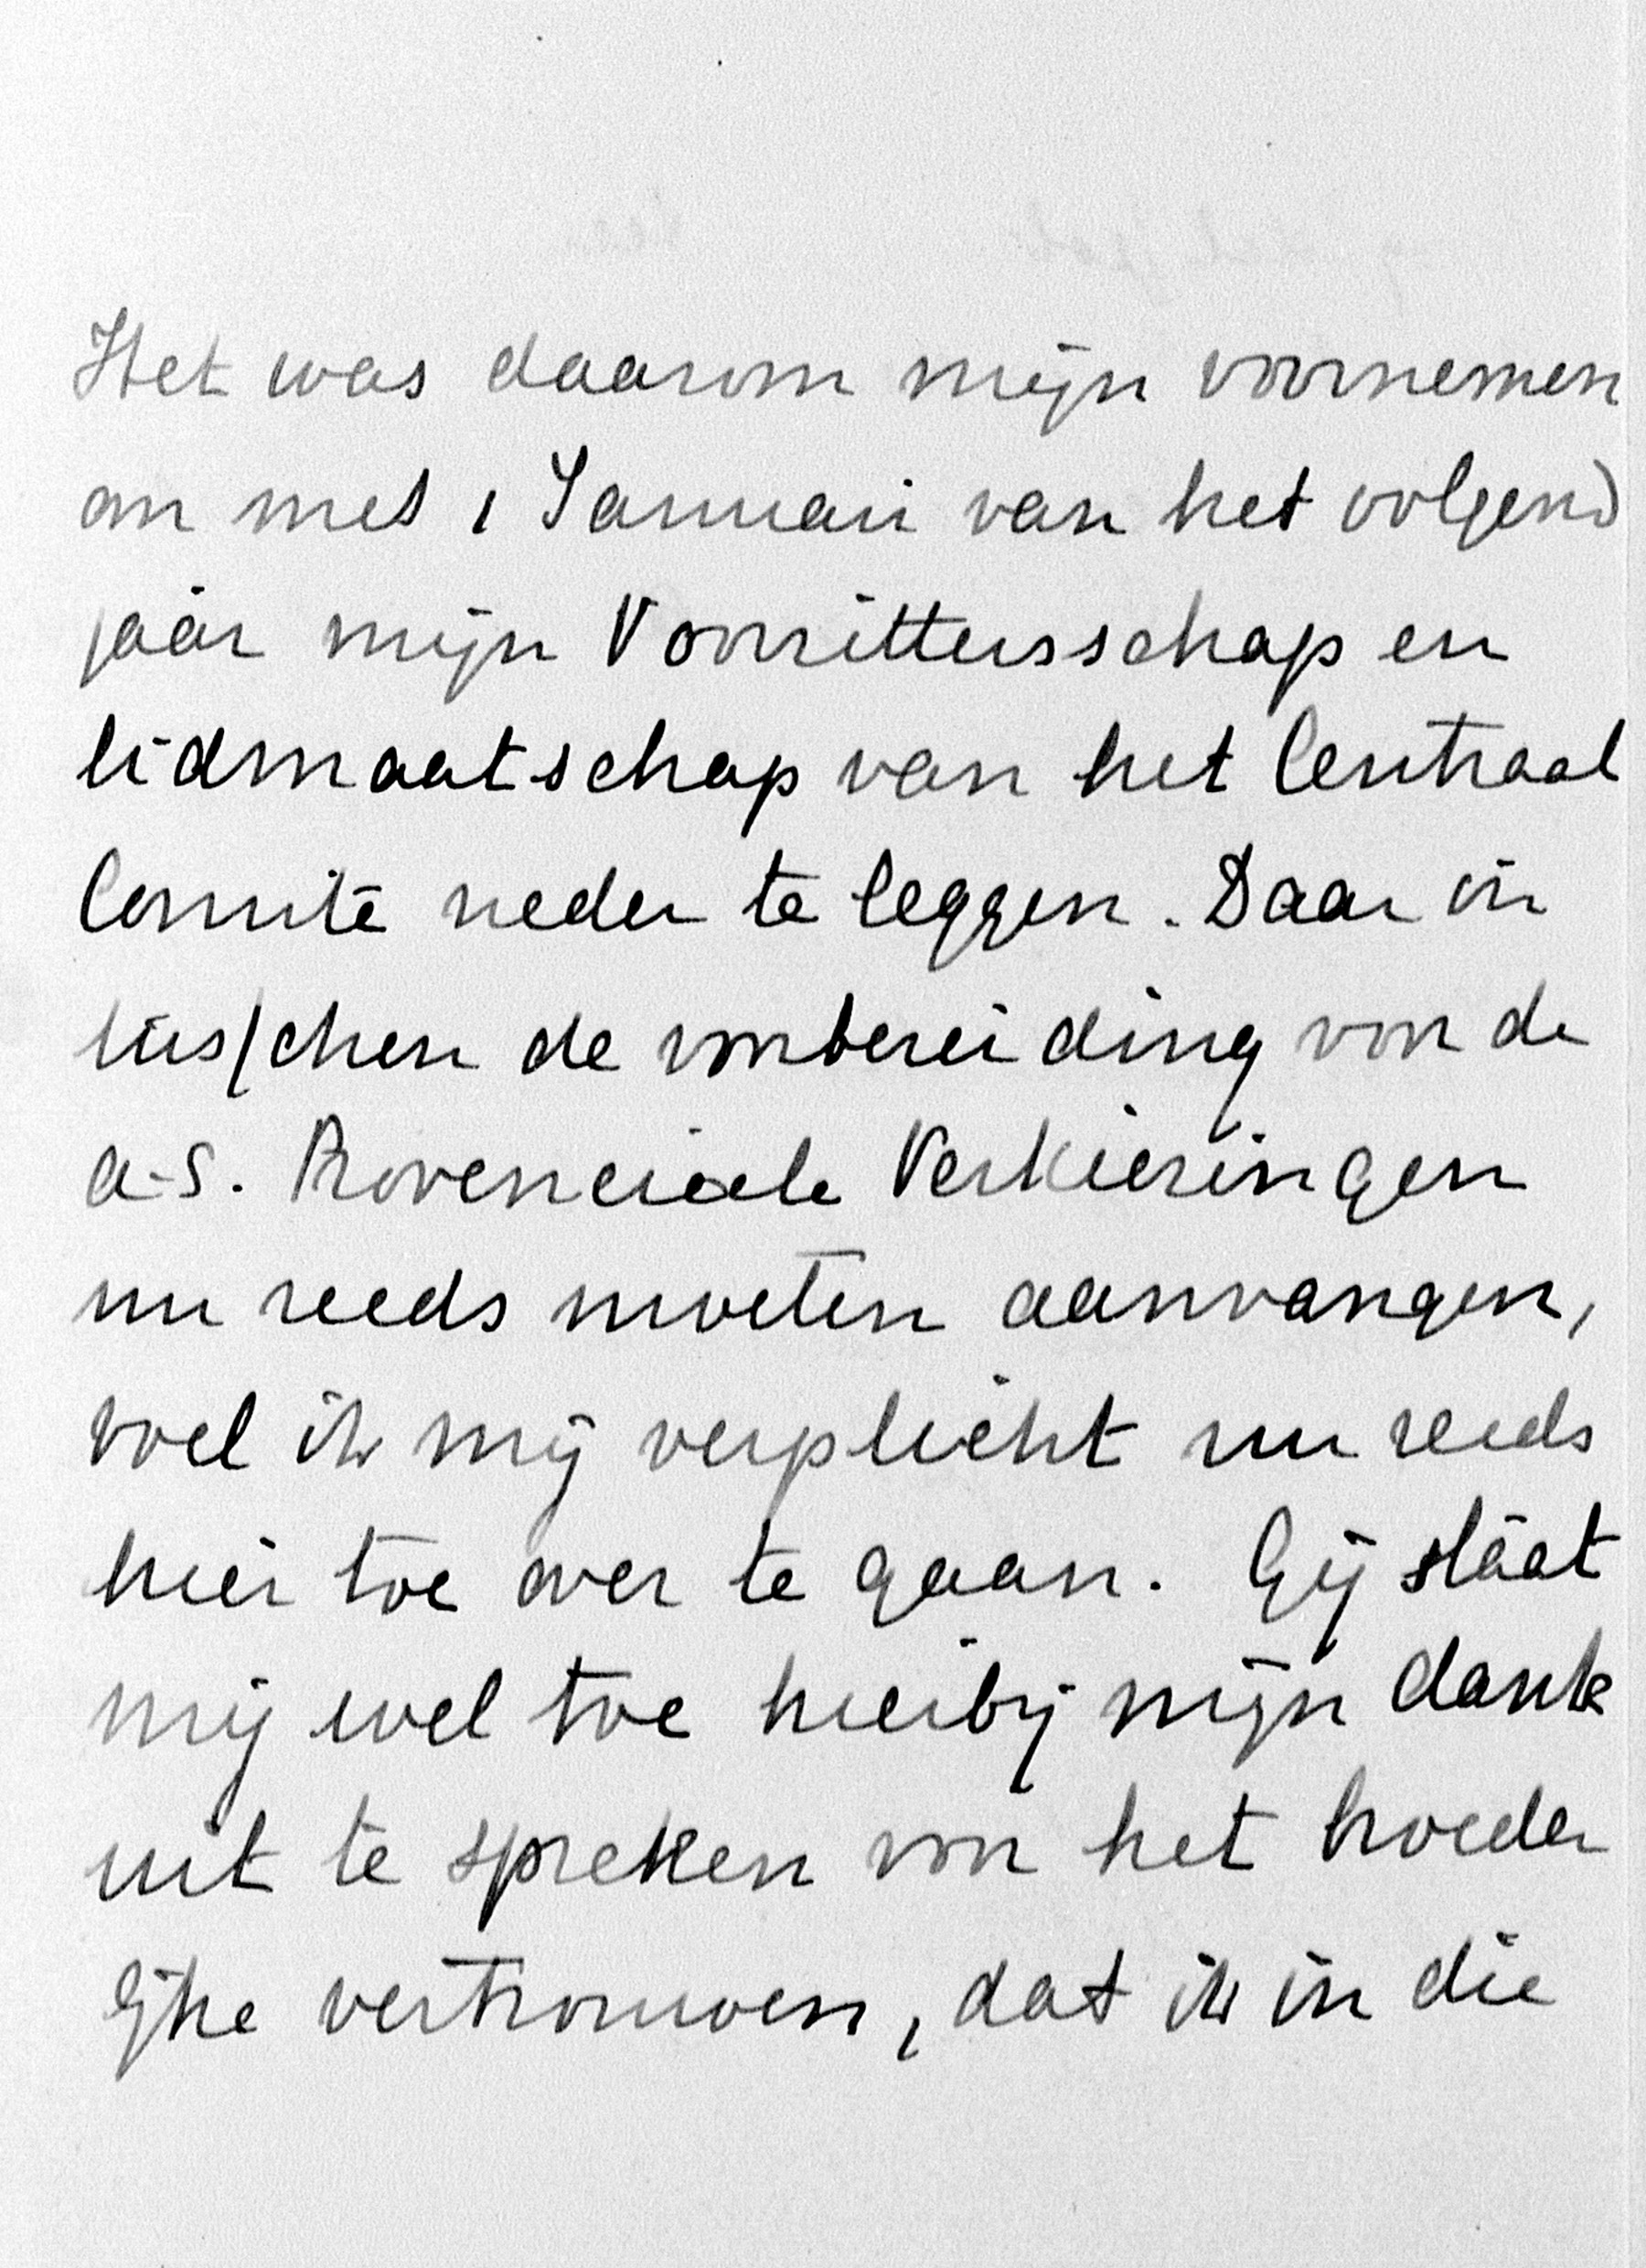 Het was daarom mijn voornemen
om met 1 Januari van het volgend
jaar mijn Voorzittersschap en
lidmaatschap van het Centraal
Comité neder te leggen. Daar in
tusschen de voorbereiding van de
a.s. Provenciale Verkiezingen
nu reeds moeten aanvangen,
voel ik mij verplicht nu reeds
hier toe over te gaan. Gij staat
mij wel toe hierbij mijn dank
uit te spreken von het broeder
lijke vertrouwen, dat ik in die